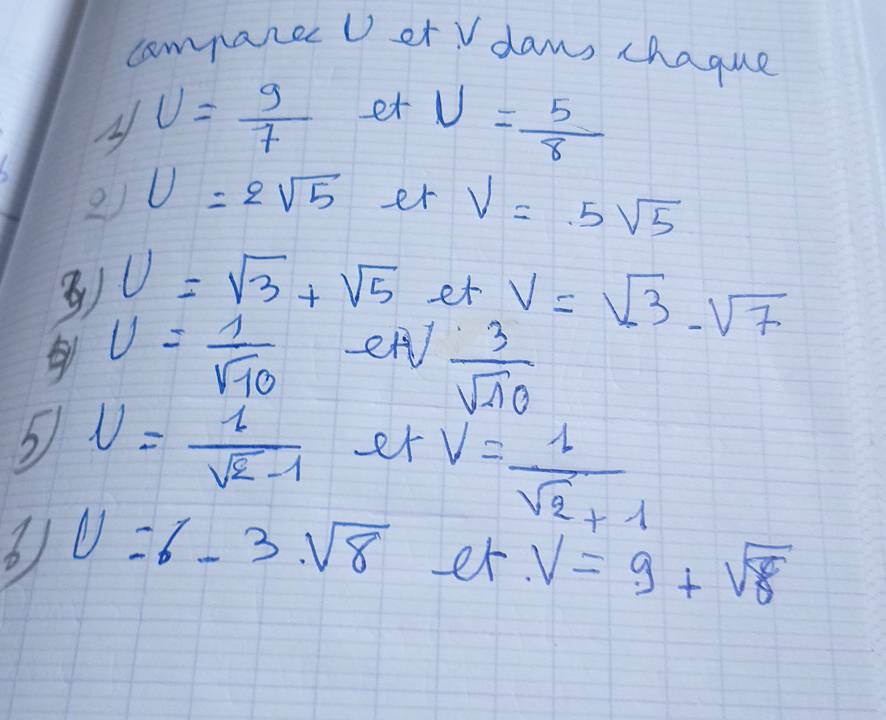 comparer U et V dans chaque
1) U = 9/7 et U = 5/8
2) U = 2√5 et V = 5√5
3) U = √3 + √5 et V = √3 - √7
U = 1/√10 et V 3/√10
5) U = 1/(√2 - 1) et V = 1/(√2 + 1)
6) U = 6 - 3.√8 et .V = 9 + √8